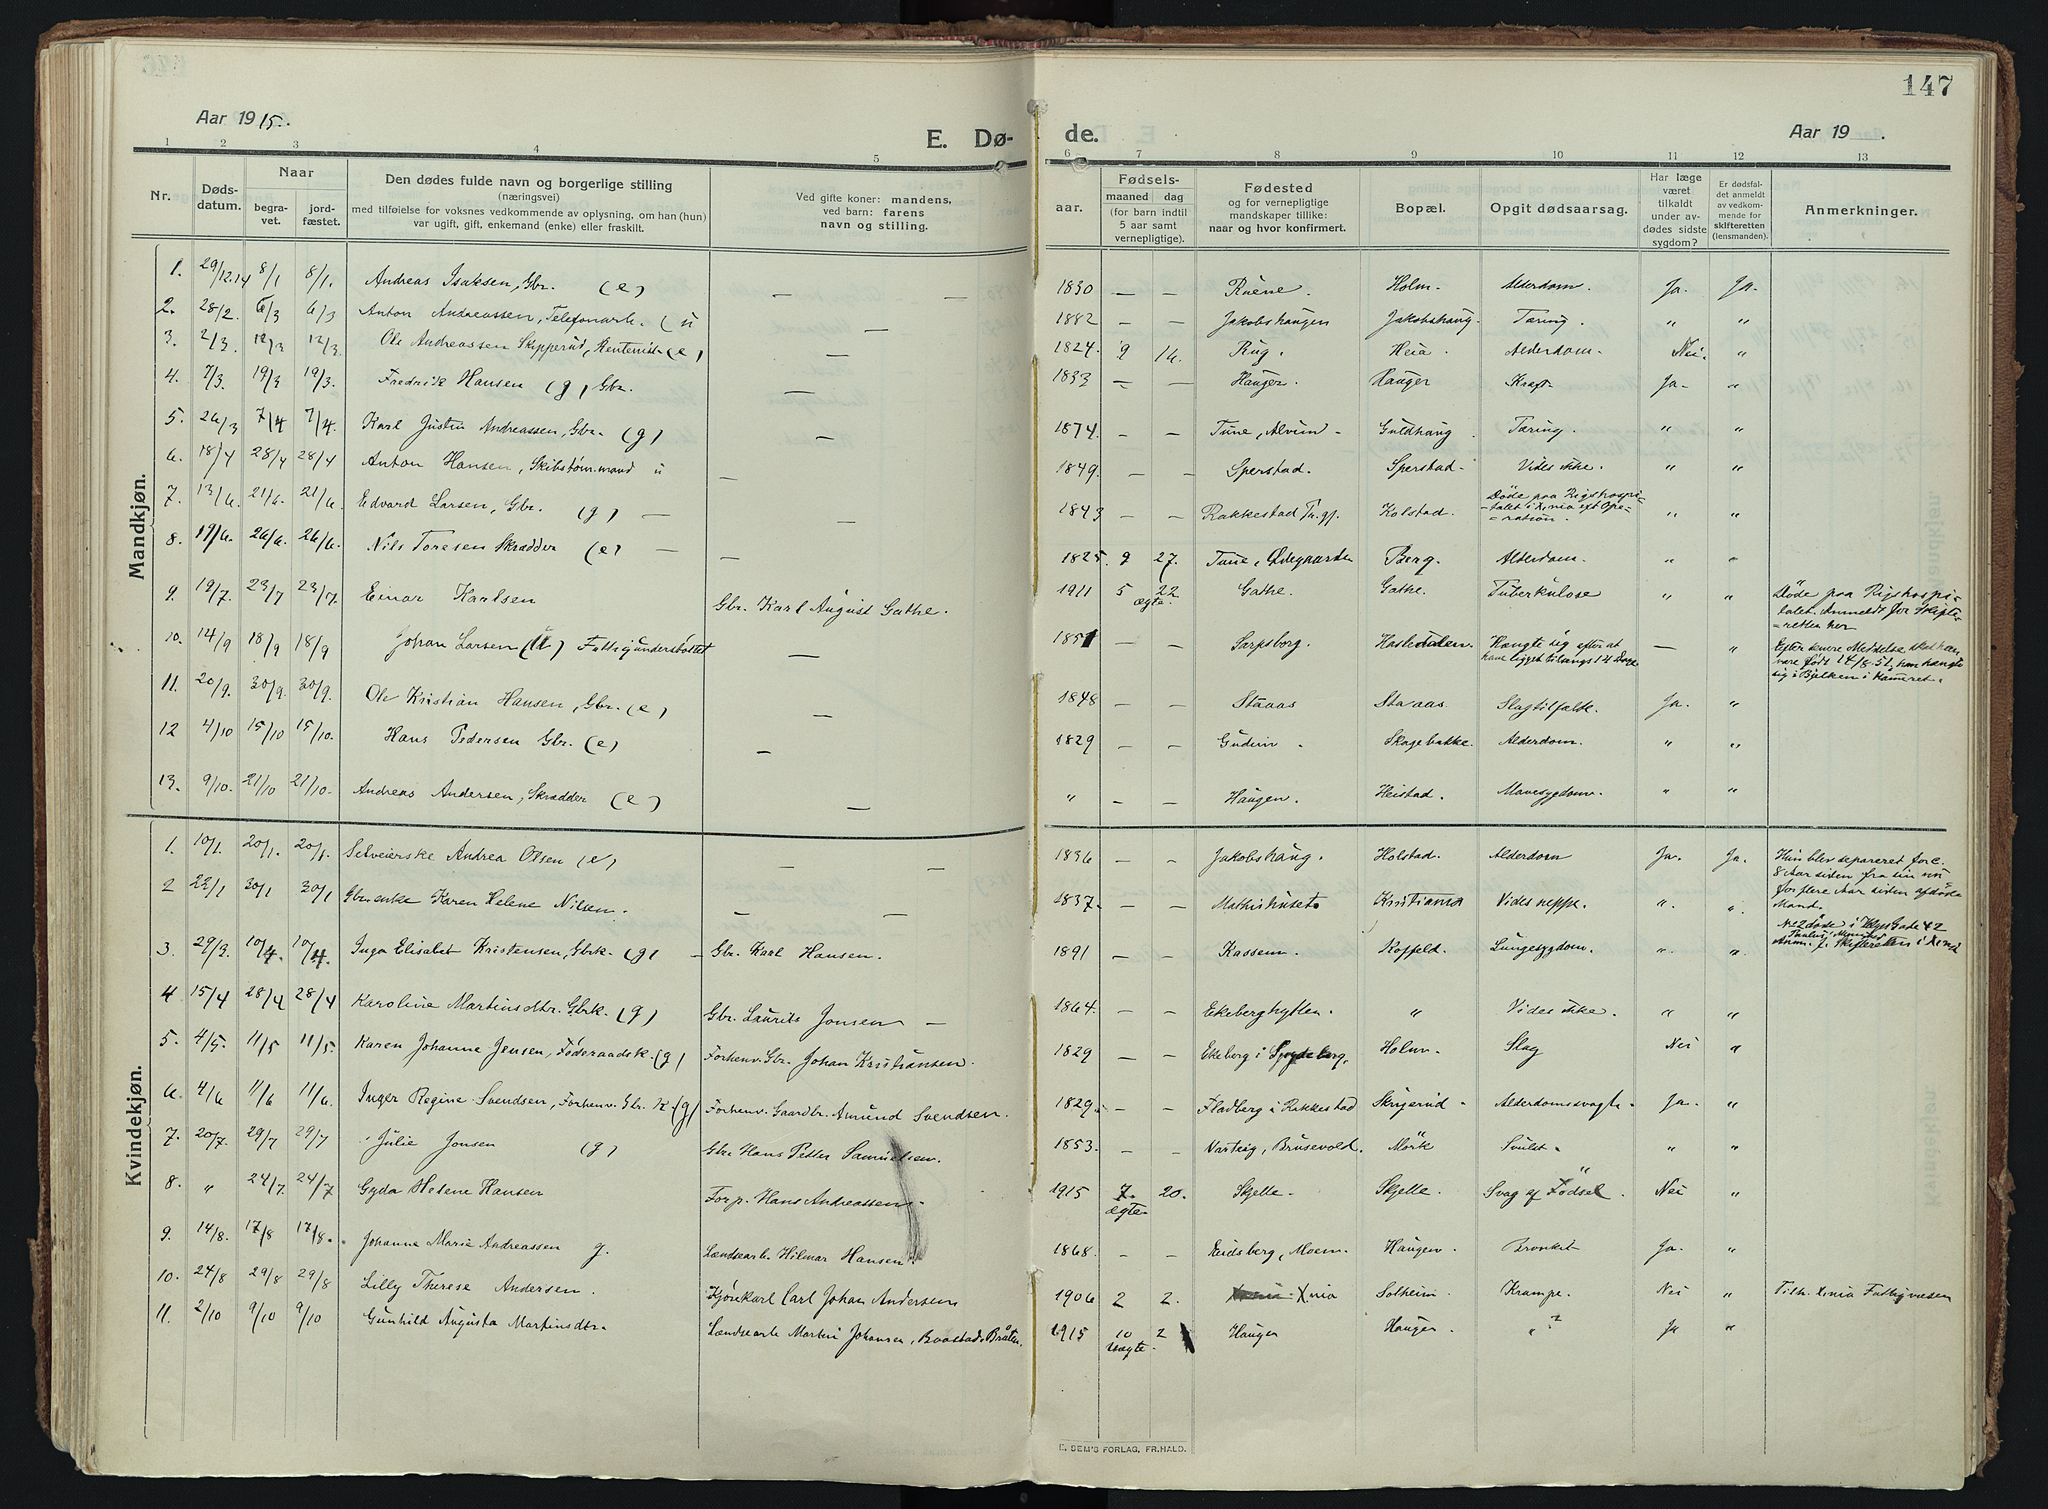 147
Aar 1915.
E. Dø-
de.
Aar 19 .
1 2 3 4 5 6 7 8 9 10 11 12 13
Nr.
Døds-
datum.
Naar
begra-
vet.
jord-
fæstet.
Den dødes fulde navn og borgerlige stilling
(næringsvei)
med tilføielse for voksnes vedkommende av oplysning, om han (hun)
var ugift, gift, enkemand (enke) eller fraskilt.
Ved gifte koner: mandens,
ved barn: farens
navn og stilling.
aar.
Fødsels-
maaned dag
(for barn indtil
5 aar samt
vernepligtige).
Fødested
og for vernepligtige
mandskaper tillike:
naar og hvor konfirmert.
Bopæl.
Opgit dødsaarsag.
Har læge
været
tilkaldt
under av-
dødes sidste
sygdom?
Er dødsfal-
det anmeldt
av vedkom-
mende for
skifteretten
(lensmanden).
Anmerkninger.
Mandkjøn.
1. 29/12.14 8/1 8/1. Andreas Isaksen, Gbr. (e) — — 1830 — — Ruene. Holm. Alderdom. Ja. Ja.
2. 28/2. 6/3 6/3 Anton Andreassen, Telefonarb. (u — 1882 — — Jakobshaugen Jakobshaug. Tæring. " "
3. 2/3. 12/3 12/3. Ole Andreassen Skipperud, Rentenist (e) — 1824. 9 16. Rug. Heia. Alderdom. Nei. "
4. 7/3. 19/3 19/3. Fredrik Hansen (g) Gbr. — 1833 — — Hauger. Hauger Kræft. Ja. "
5. 26/3 7/4 7/4. Karl Justin Andreassen, Gbr. (g) — 1874. — — Tune, Alvim Guldhaug Tæring. " "
6. 18/4 28/4 28/4 Anton Hansen, Skibstømmand u — 1849. — — Sperstad. Sperstad. Vides ikke. " "
7. 13/6. 21/6. 21/6. Edvard Larsen, Gbr. (g) — — 1843 — — Rakkestad Pr.gj. Kolstad. Døde paa Rigshospi-
talet i Xnia eft Ope-
ration. " "
8. 19/6. 26/6. 26/6. Nils Toresen Skrædder (e) — — 1825. 9 27. Tune, Ødegaarden Berg. Alderdom. " "
9. 19/7. 23/7 23/7. Einar Karlsen Gbr. Karl August Gathe. 1911 5 22 ægte. Gathe. Gathe. Tuberkulose " " Döde paa Rigshospi-
talet. Anmeldt for Skifte-
retten her
10. 14/9 18/9 18/9 Johan Larsen (u) Fattigunderstöttet — 1851 — — Sarpsborg. Hængte sig efter at
have ligget tilsengs 14 Dage — " Efter senere Meddelelse skal han
være født 14/8 51, han hængte
sig i Bjelken i Kammret.
11. 20/9. 30/9. 30/9. Ole Kristian Hansen, Gbr. (e) — 1848 — — Staaas Staaas. Slagtilfælde. Ja. "
12 4/10 15/10 15/10. Hans Pedersen Gbr. (e) — 1829 — — Gudim Skogebakke. Alderdom. " "
13. 9/10. 21/10 21/10. Andreas Andersen, Skrædder (e) — " — — Haugen. Heistad. Mavesygdom. " "
Kvindekjøn.
1. 10/1. 20/1. 20/1. Selveierske Andrea Olsen (e) — — 1836 — — Jakobshaug. Holstad. Alderdom Ja. Ja. Hun blev separeret for c.
8 Aar siden fra sin nu
for flere Aar siden afdøde
Mand.
2 22/1 30/1 30/1 Gbr.enke Karen Helene Nilsen. — — 1837. — — Mathishuset Kristiania Vides neppe. " " No 2 døde i Gade 42
Anm. f. Skifteretten i Xnia
3. 29/3. 10/4. 10/4. Inga Elisabet Kristensen, Gbrk. (g) Gbr. Karl Hansen. 1891 — — Kassem. Kopfeld. Lungesygdom. " "
4 15/4 28/4 28/4 Karoline Martinsdtr. Gbrk. (g) Gbr. Laurits Jonsen — 1864. — — Ekeberghytten. " Vides ikke. " "
5. 4/5. 11/5 11/5. Karen Johanne Jensen, Føderaadsk. (g) Forhenv. Gbr. Johan Kristiansen. 1829 — — Ekeberg i Holm. Slag Nei "
6. 4/6 11/6 11/6. Inger Regine Svendsen, Forhenv. Gbr. K. (g) Forhenv. Gaardbr. Amund Svendsen. 1829. — — Fladberg i Rakkestad Skrigerud Alderdomssvagh. Ja. "
7. 20/7. 29/7 29/7 Julie Jonsen (g) Gbr. Hans Petter Samuelsen. 1853. — — Varteig, Brusevold. Mörk Svulst. " "
8. " 24/7. 24/7 Gyda Helene Hansen Forp. Hans Andreassen. 1915 7. 20. ægte. Skjelle. Skjelle. Svag af Födsel. Nei "
9. 14/8. 17/8 17/8. Johanne Marie Andreassen g. Landsearb. Hilmar Hansen 1868. — — Eidsberg, Moem. Haugen. Bronkit Ja. "
10. 24/8 29/8 29/8 Lilly Therese Andersen. Kjörekarl Carl Johan Andersen 1906 2 2. Xnia Solheim. Krampe. Nei " Tilh. Xnia Fattigvæsen
11. 2/10 9/10 9/10 Gunhild Augusta Martinsdtr. Landsearb Martin Johansen, Baastad, Bråten. 1915 10 2 uægte. Hauger Hauger. " ? Ja "
E. SEM'S FORLAG, FR.HALD.